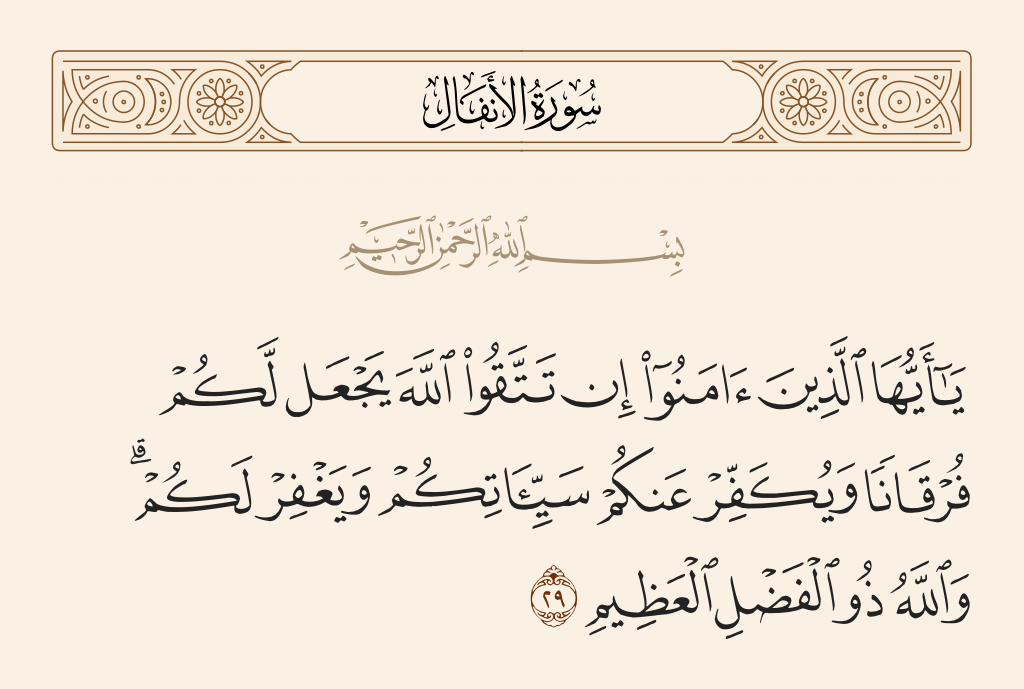 سُورَةُ الأَنفَالِ
بِسْمِ ٱللَّهِ ٱلرَّحْمَٰنِ ٱلرَّحِيمِ
يَـٰٓأَيُّهَا ٱلَّذِينَ ءَامَنُوٓا۟ إِن تَتَّقُوا۟ ٱللَّهَ يَجْعَل لَّكُمْ
فُرْقَانًا وَيُكَفِّرْ عَنكُمْ سَيِّـَٔاتِكُمْ وَيَغْفِرْ لَكُمْ ۗ
وَٱللَّهُ ذُو ٱلْفَضْلِ ٱلْعَظِيمِ ٢٩